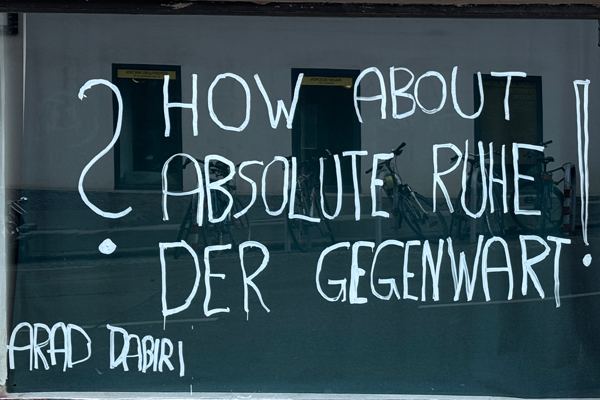 ? HOW ABOUT !
ABSOLUTE RUHE
DER GEGENWART
ARAD DABIRI